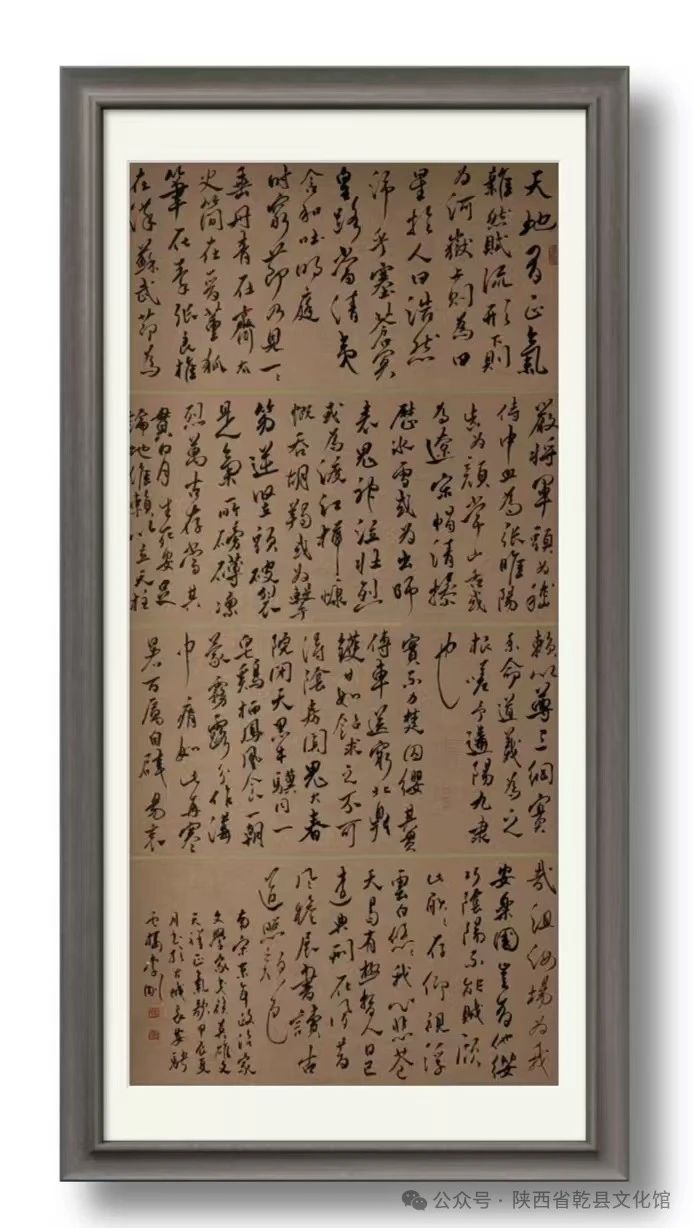 天地有正氣
雜然賦流形下則
為河嶽上則為日
星於人曰浩然
沛乎塞蒼冥
皇路當清夷
含和吐明庭
時窮節乃見一一
垂丹青在齊太
史簡在晉董狐
筆在秦張良椎
在漢蘇武節為
嚴將軍頭為嵇
侍中血為張睢陽
齒為顏常山舌或
為遼東帽清操
厲冰雪或為出師
表鬼神泣壯烈
或為渡江楫慷
慨吞胡羯或為擊
笏逆豎頭破裂
是氣所磅礴凜
烈萬古存當其
貫日月生死安足
論地維賴以立天柱
賴以尊三綱實
系命道義為之
根嗟予遘陽九隸
也
實不力楚囚纓其冠
傳車送窮北鼎
鑊甘如飴求之不可
得陰房闃鬼火春
院閟天黑牛驥同一
皂雞栖鳳凰食一朝
蒙霧露分作溝
中瘠如此再寒
暑百厲自辟易哀
哉沮洳場為我
安樂國豈有他繆
巧陰陽不能賊顧
此耿耿存仰視浮
雲白悠悠我心悲蒼
天曷有極哲人日已
遠典刑在夙昔
風簷展書讀古
道照顏色
南宋末年政治家
文學家民族英雄文
天祥正氣歌甲辰夏
月書於古城長安
樓李剛
公众号·陕西省乾县文化馆